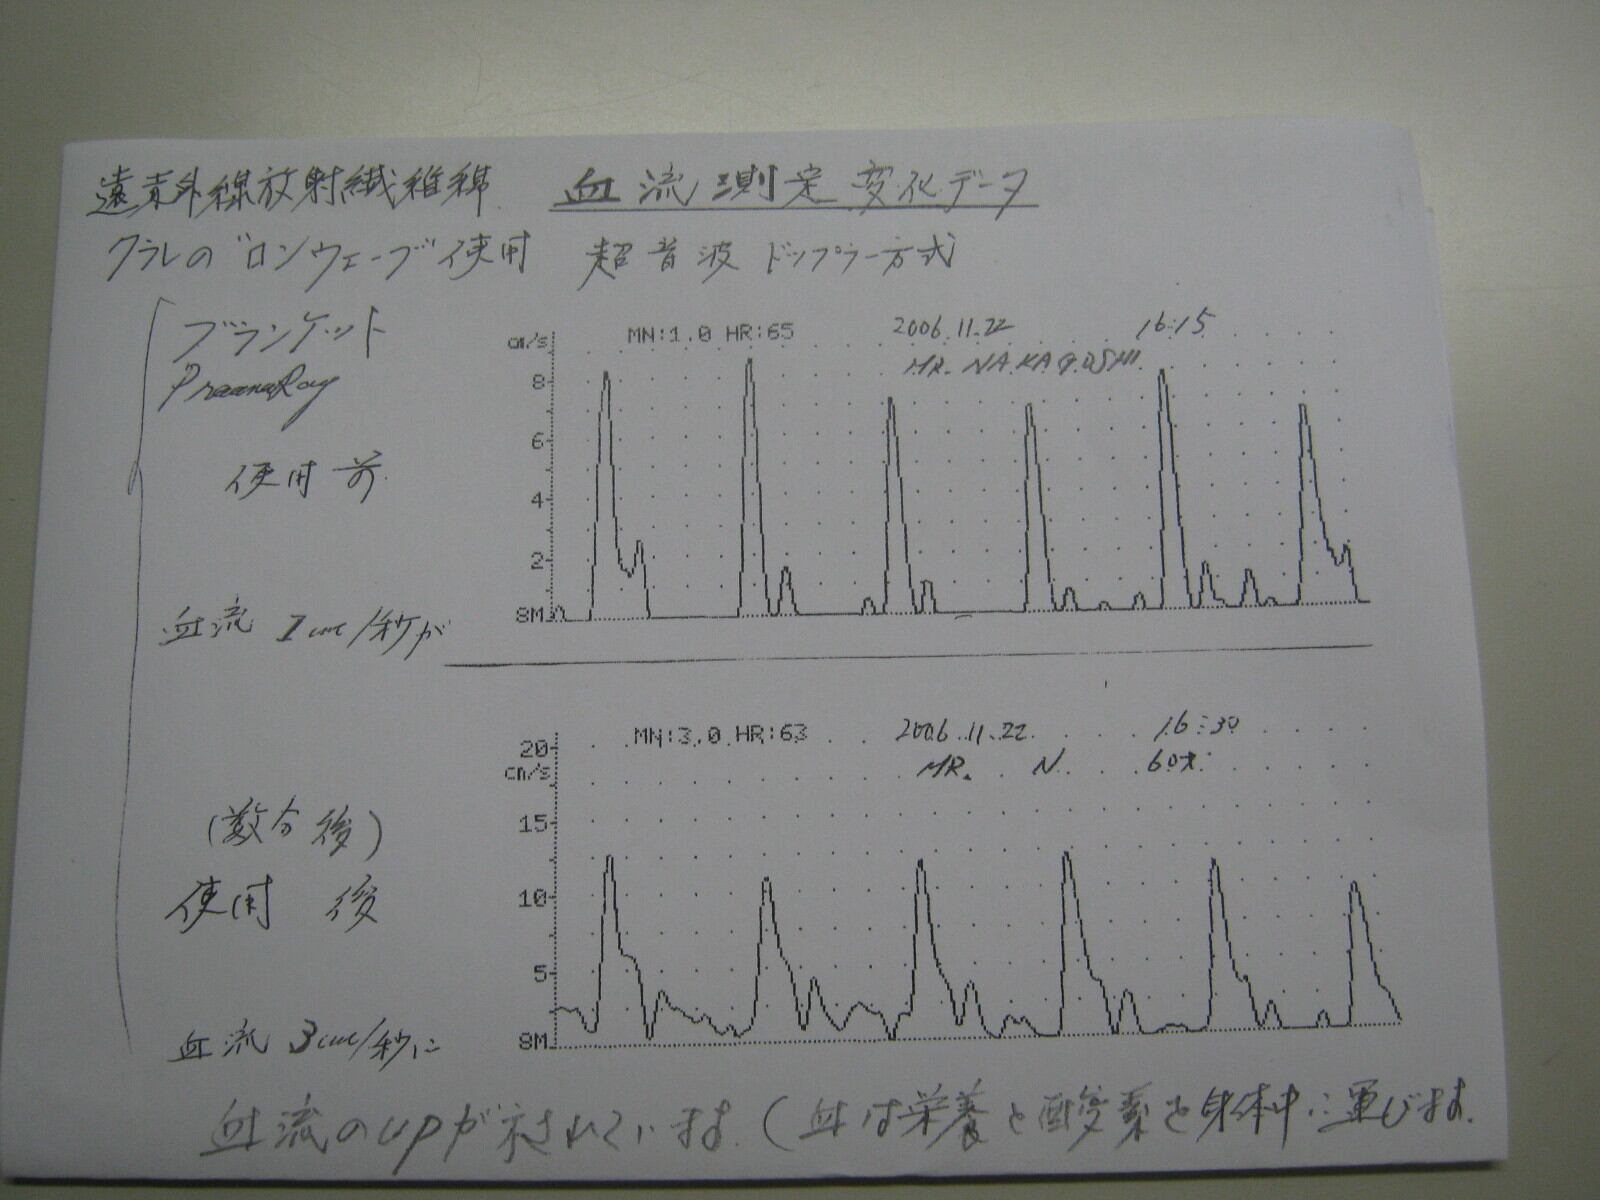 遠赤外線放射繊維綿 血流測定変化データ
クラレの"ロンウェーブ"使用 超音波ドップラー方式
ブランケット
PraanaRay
使用前
血流 1cm/秒が
cm/s MN:1.0 HR:65 2006.11.22 16:15
MR. NAKAGOSHI.
8
6
4
2
8M
MN:3.0 HR:63 2006.11.22. 16:30
20
cm/s MR. N. 60才
15
(数分後)
10
使用 後
5
8M
血流 3cm/秒に
血流のupが示されています。(血は栄養と酸素を身体中に運びます.